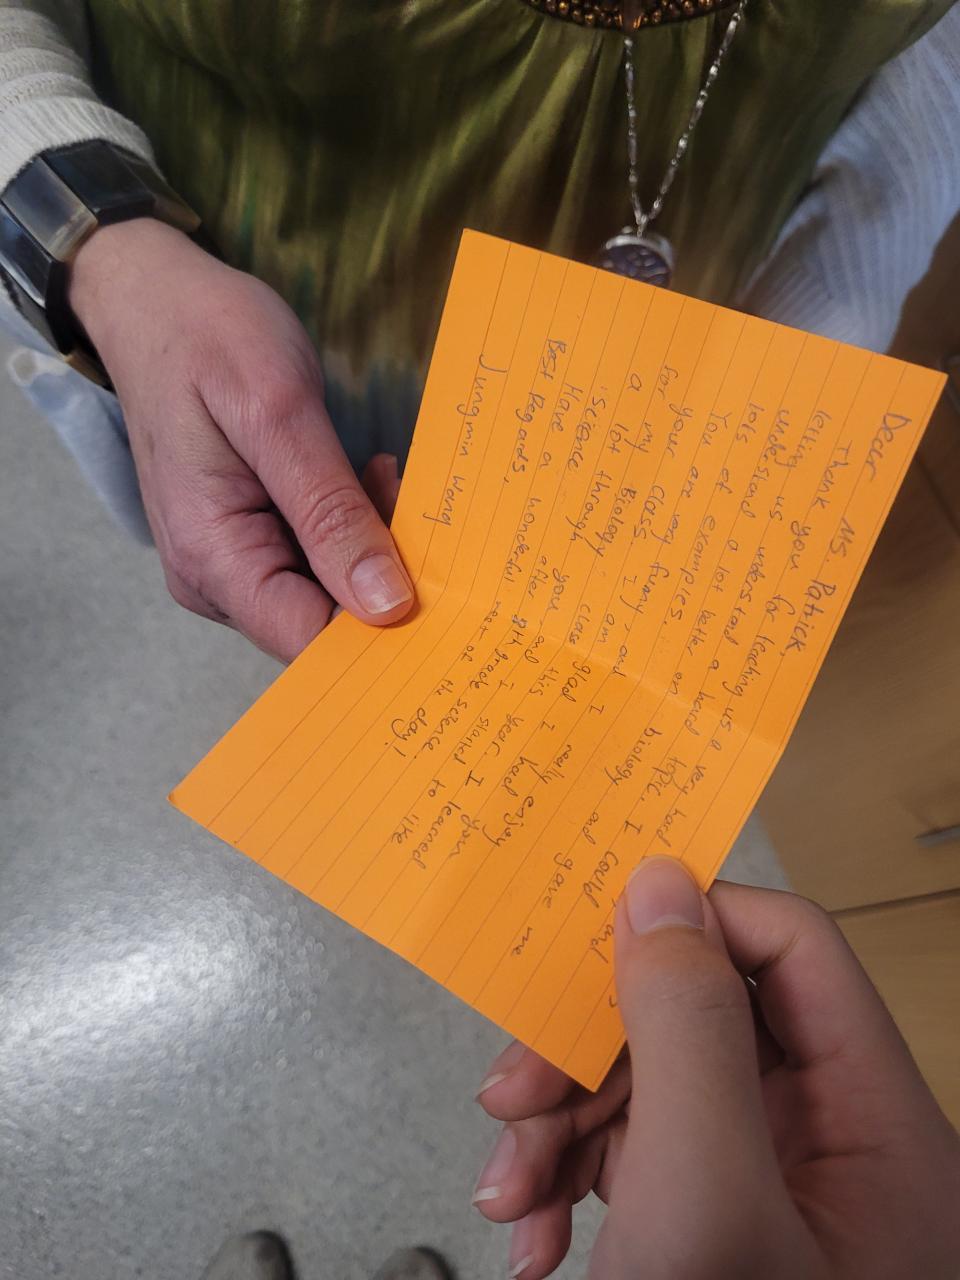 Dear Ms. Patrick,
Thank you for teaching us a very hard topic. I could
letting us understand a hard biology and gave me
undestand a lot better on
lots of examples.
You are very funny, and glad I really enjoy
for your class. I am
a my Biology class this year. I learned
a lot through you and I started to like
science after 8th grade science.
Have a wonderful rest of the day!
Best Regards,
Jungmin Wang